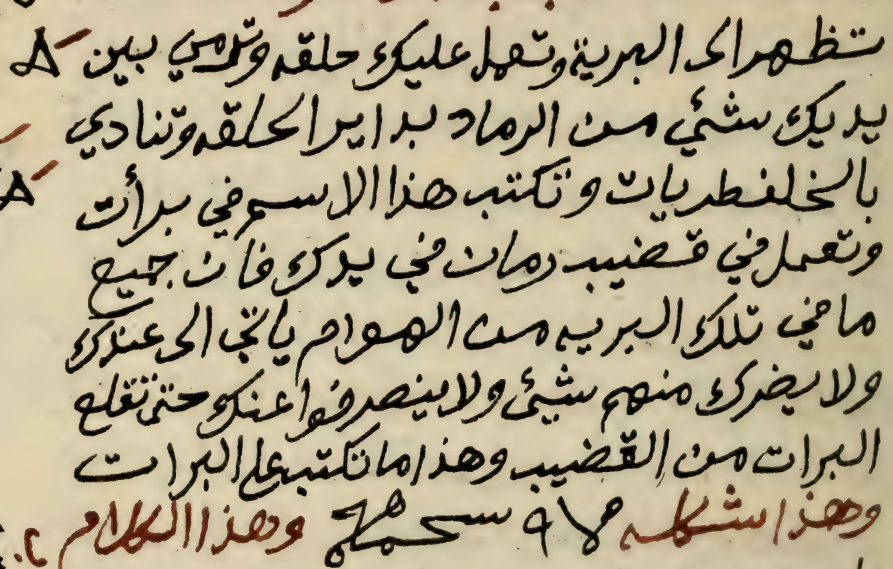 تظهر الى البرية وتعمل عليك حلقه وترمي بين
يديك شئي من الرماد بداير الحلقه وتنادي
بالخلفطريات وتكتب هذا الاسم في برأت
وتعمل في قضيب رمان في يدك فان جميع
ما في تلك البريه من الهوام ياتي الى عندك
ولا يضرك منهم شيئ ولا ينصرفوا عنك حتى تقلع
البرات من القضيب وهذا ما تكتب على البرات
وهذا شكله وهذا الكلام